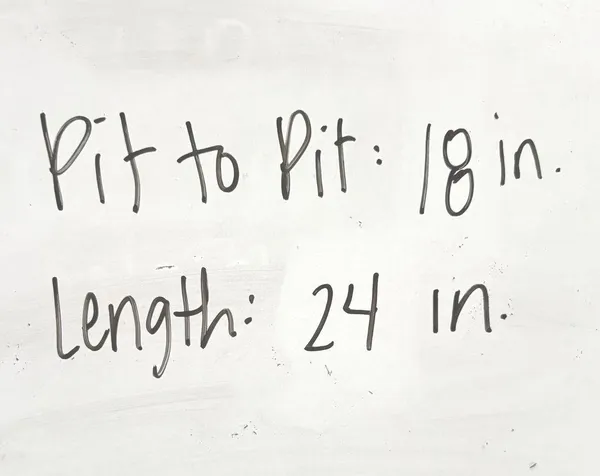 Pit to Pit: 18 in.
Length: 24 in.